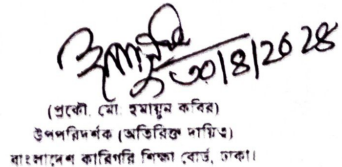 ৩০/৪/২০২৪
(প্রকৌ. মো. হুমায়ুন কবির)
উপপরিদর্শক (অতিরিক্ত দায়িত্ব)
বাংলাদেশ কারিগরি শিক্ষা বোর্ড, ঢাকা।